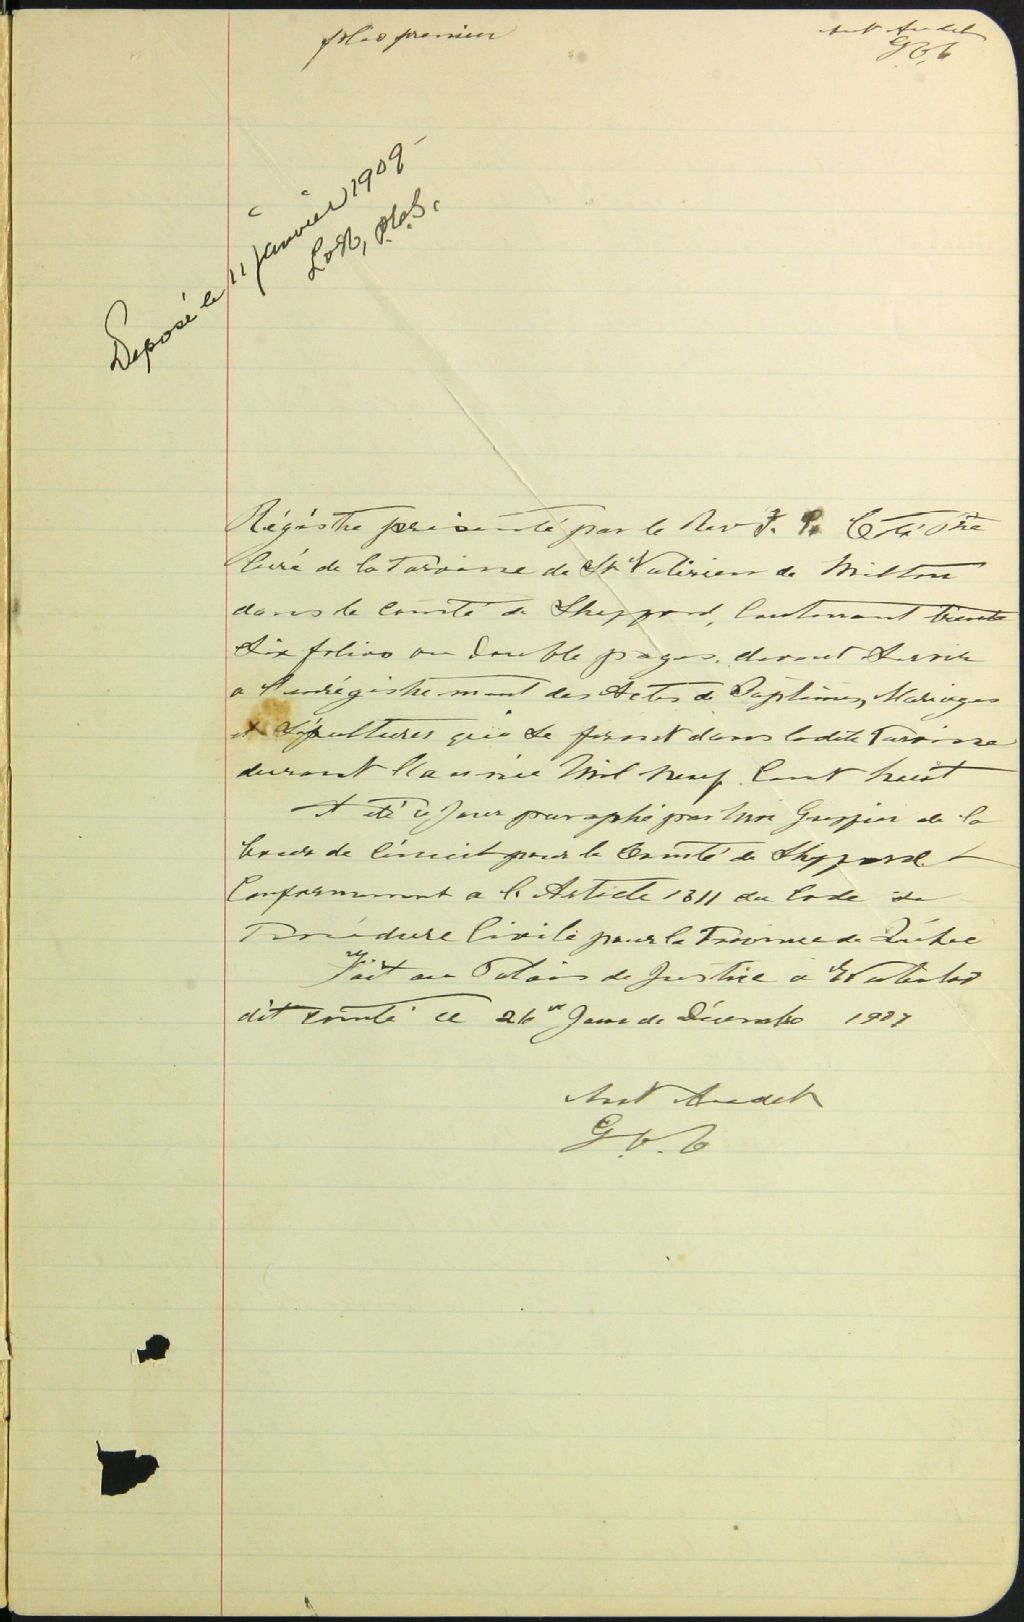 folio premier
Ant Audet
G.C.C
Deposé le 11 janvier 1909
Régistre présenté par le Rev F. P. Coté Ptre
Curé de la Paroisse de St Valérien de Milton
dans le Comté de Sheppord, Contenant trente
Six folios ou double pages, devant Servir
a l'enrégistrement des Actes de Baptêmes, Mariages
et Sépultures qui se feront dans ladite Paroisse
durant l'année Mil neuf Cent huit
A été ce Jour paraphé par Moi Greffier de la
Cour de Circuit pour le Comté de Sheppord
Conformement a l'Article 1311 du Code de
Procédure Civile pour la Province de Québec
Fait au Palais de Justice a Waterloo
dit Comté ce 26 Jour de Décembre 1907
Ant Audet
G.C.C